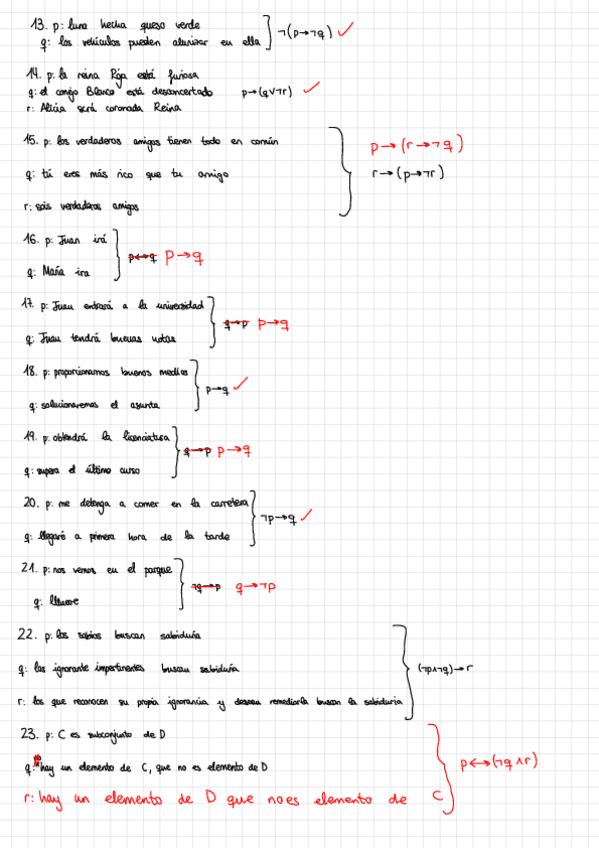 13. p: luna hecha queso verde
q: los vehículos pueden alunizar en ella
¬(p→¬q) ✓
14. p: la reina Roja está furiosa
q: el conejo Blanco está desconcertado p→(q∨¬r) ✓
r: Alicia será coronada Reina
15. p: los verdaderos amigos tienen todo en común
p→(r→¬q)
q: tú eres más rico que tu amigo
r→(p→¬r)
r: sois verdaderos amigos
16. p: Juan irá
p↔q p→q
q: María ira
17. p: Juan entrará a la universidad
q→p p→q
q: Juan tendrá buenas notas
18. p: proporcionamos buenos medios
p→q ✓
q: solucionaremos el asunto
19. p: obtendrá la licenciatura
q→p p→q
q: supera el último curso
20. p: me detenga a comer en la carretera
¬p→q ✓
q: llegaré a primera hora de la tarde
21. p: nos vemos en el parque
¬q→p q→¬p
q: llueve
22. p: los sabios buscan sabiduría
q: los ignorante impertinentes buscan sabiduría
(¬p∧¬q)→r
r: los que reconocen su propia ignorancia y desean remediarla buscan la sabiduria
23. p: C es subconjunto de D
q: hay un elemento de C, que no es elemento de D
p↔(¬q∧r)
r: hay un elemento de D que no es elemento de C